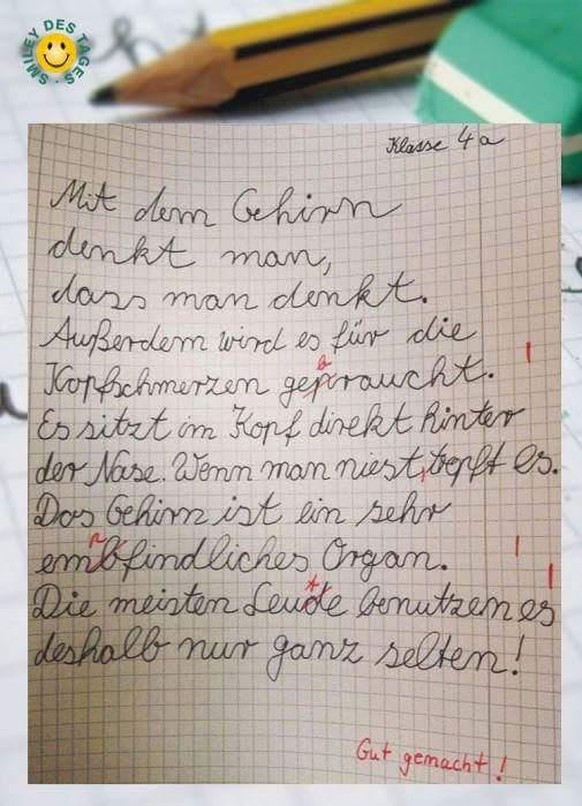 SMILEY DES TAGES
Klasse 4a
Mit dem Gehirn
denkt man,
dass man denkt.
Außerdem wird es für die
b
Kopfschmerzen gepraucht.
Es sitzt im Kopf direkt hinter
der Nase. Wenn man niest, tropft es.
Das Gehirn ist ein sehr
p
embfindliches Organ.
t
Die meisten Leude benutzen es
deshalb nur ganz selten!
Gut gemacht!